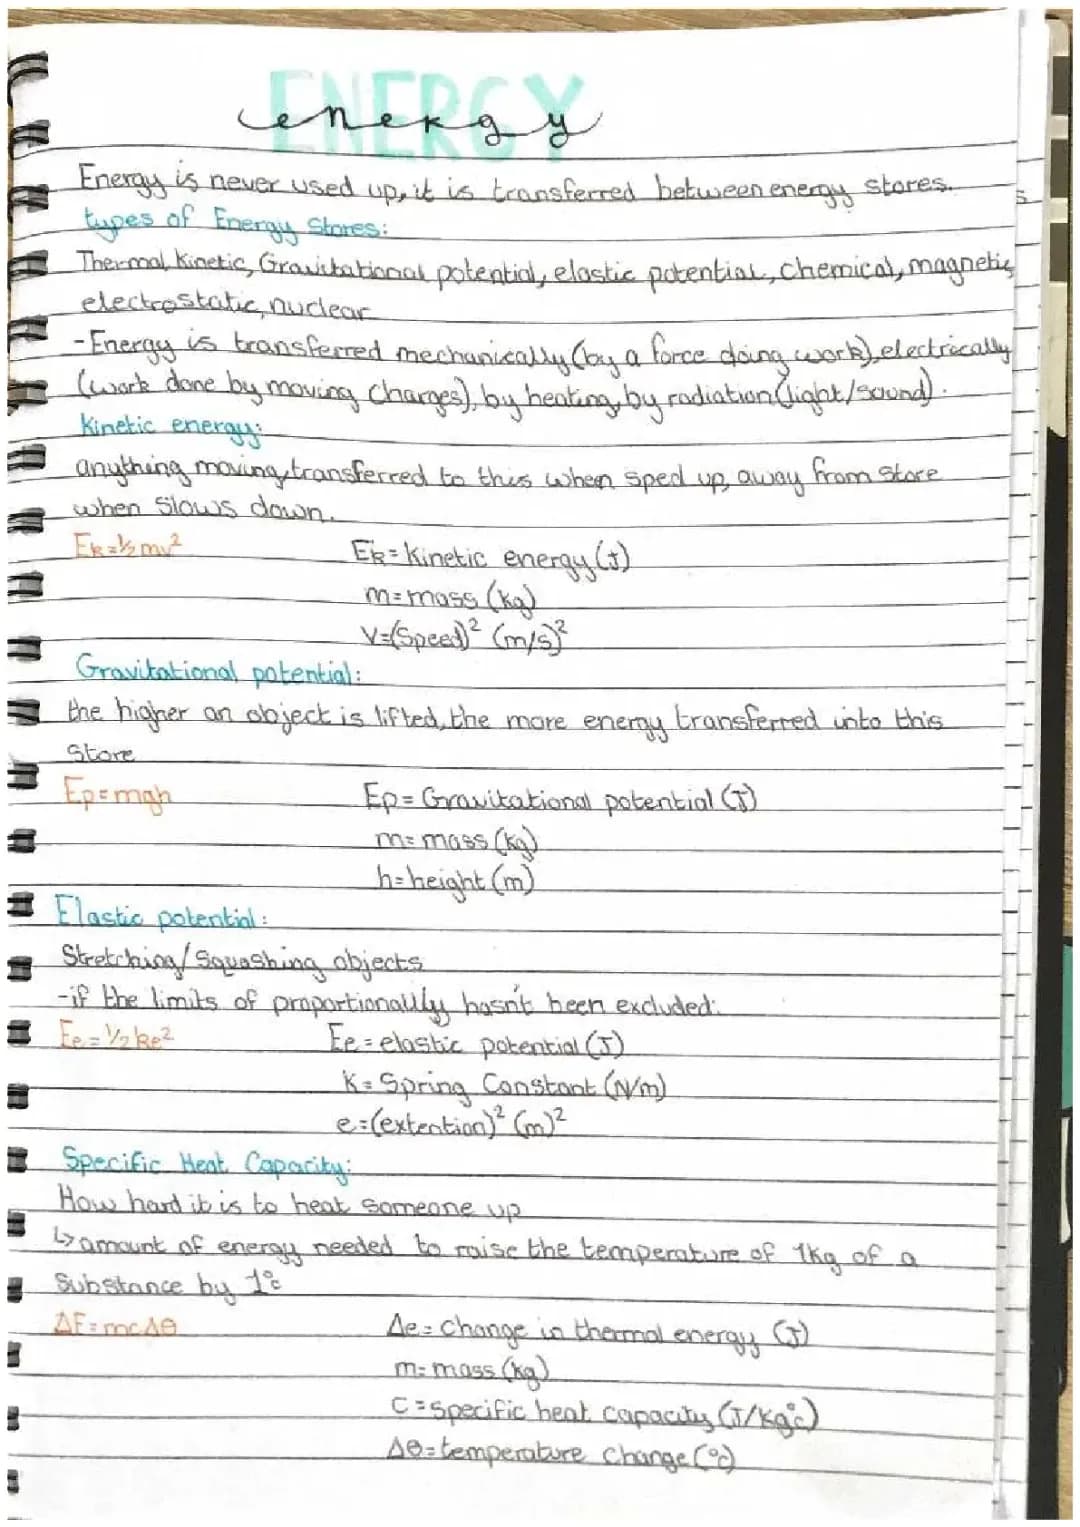 ENERGY
energy
Energy is never used up, it is transferred between energy stores.
types of Energy Stores:
Thermal, Kinetic, Gravitational potential, elastic potential, chemical, magnetic,
electrostatic, nuclear
-Energy is transferred mechanically (by a force doing work), electrically
(work done by moving charges), by heating, by radiation (light/sound).
Kinetic energy:
anything moving, transferred to this when sped up, away from store
when slows down.
Ek=½mv² Ek=Kinetic energy (J)
m=mass (kg)
V=(Speed)² (m/s)²
Gravitational potential:
the higher an object is lifted, the more energy transferred into this
Store
Ep=mgh Ep=Gravitational potential (J)
m=mass (kg)
h=height (m)
Elastic potential:
Stretching/Squashing objects
-if the limits of proportionally hasn't been excluded:
Ee=½ke² Ee=elastic potential (J)
K=Spring Constant (N/m)
e=(extention)² (m)²
Specific Heat Capacity:
How hard it is to heat someone up
↳amount of energy needed to raise the temperature of 1kg of a
Substance by 1°c
ΔE=mcΔθ Δe=Change in thermal energy (J)
m=mass (kg)
C=specific heat capacity (J/kg°c)
Δθ=temperature change (°c)